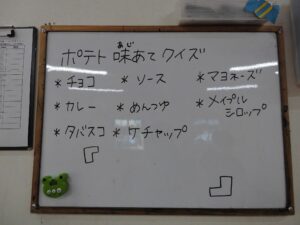 ポテト 味あてクイズ
あじ
*チョコ *ソース *マヨネーズ
*カレー *めんつゆ *メイプルシロップ
*タバスコ *ケチャップ